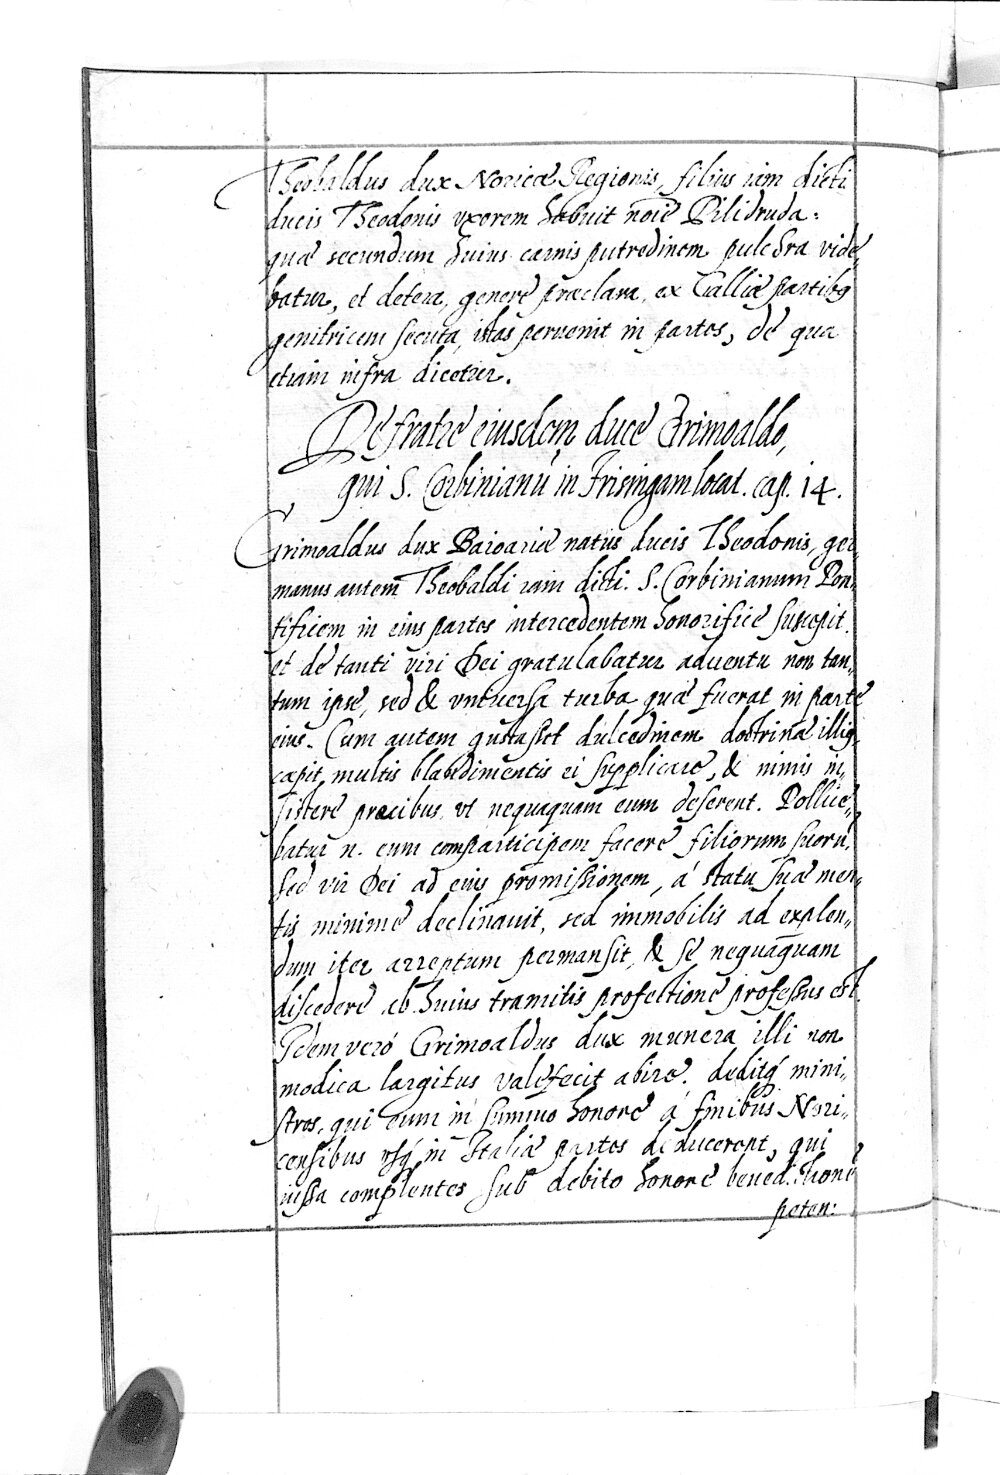 Theobaldus dux Noricæ Regionis, filius iam dicti
ducis Theodonis vxorem habuit noīe Pilidruda:
quæ secundum huius carnis putredinem pulchra vide„
batur, et detera, genere præclara, ex Galliæ partibꝫ
genitricem secuta, istas peruenit in partes, de qua
etiam infra dicetur.
De fratre eiusdem duce Grimoaldo,
qui S. Corbinianū in Frisingam locat. cap. 14.
Grimoaldus dux Baioariæ natus ducis Theodonis, ger„
manus autem Theobaldi iam dicti. S. Corbinianum Pon„
tificem in eius partes intercedentem honorifice suscepit.
et de tanti viri Dei gratulabatur aduentu non tan„
tum ipse, sed & vniuersa turba quæ fuerat in parte
eius. Cum autem gustasset dulcedinem doctrinæ illiꝰ,
cæpit multis blandimentis ei supplicare, & nimis in„
sistere præcibus, vt nequaquam eum deserent. Pollice„
batur n. eum comparticipem facere filiorum suorū,
Sed vir Dei ad eius promissionem, á statu suæ men„
tis minime declinauit, sed immobilis ad explen„
dum iter arreptum permansit, & se nequaquam
discedere ab huius tramitis profectione professus est.
Idem veró Grimoaldus dux munera illi non
modica largitus valefecit abire. deditqꝫ mini„
stros, qui eum in summo honore á finibus Nori„
censibus vsqꝫ in Italiæ partes deducerent, qui
iussa complentes sub debito honore benedictione
peten: